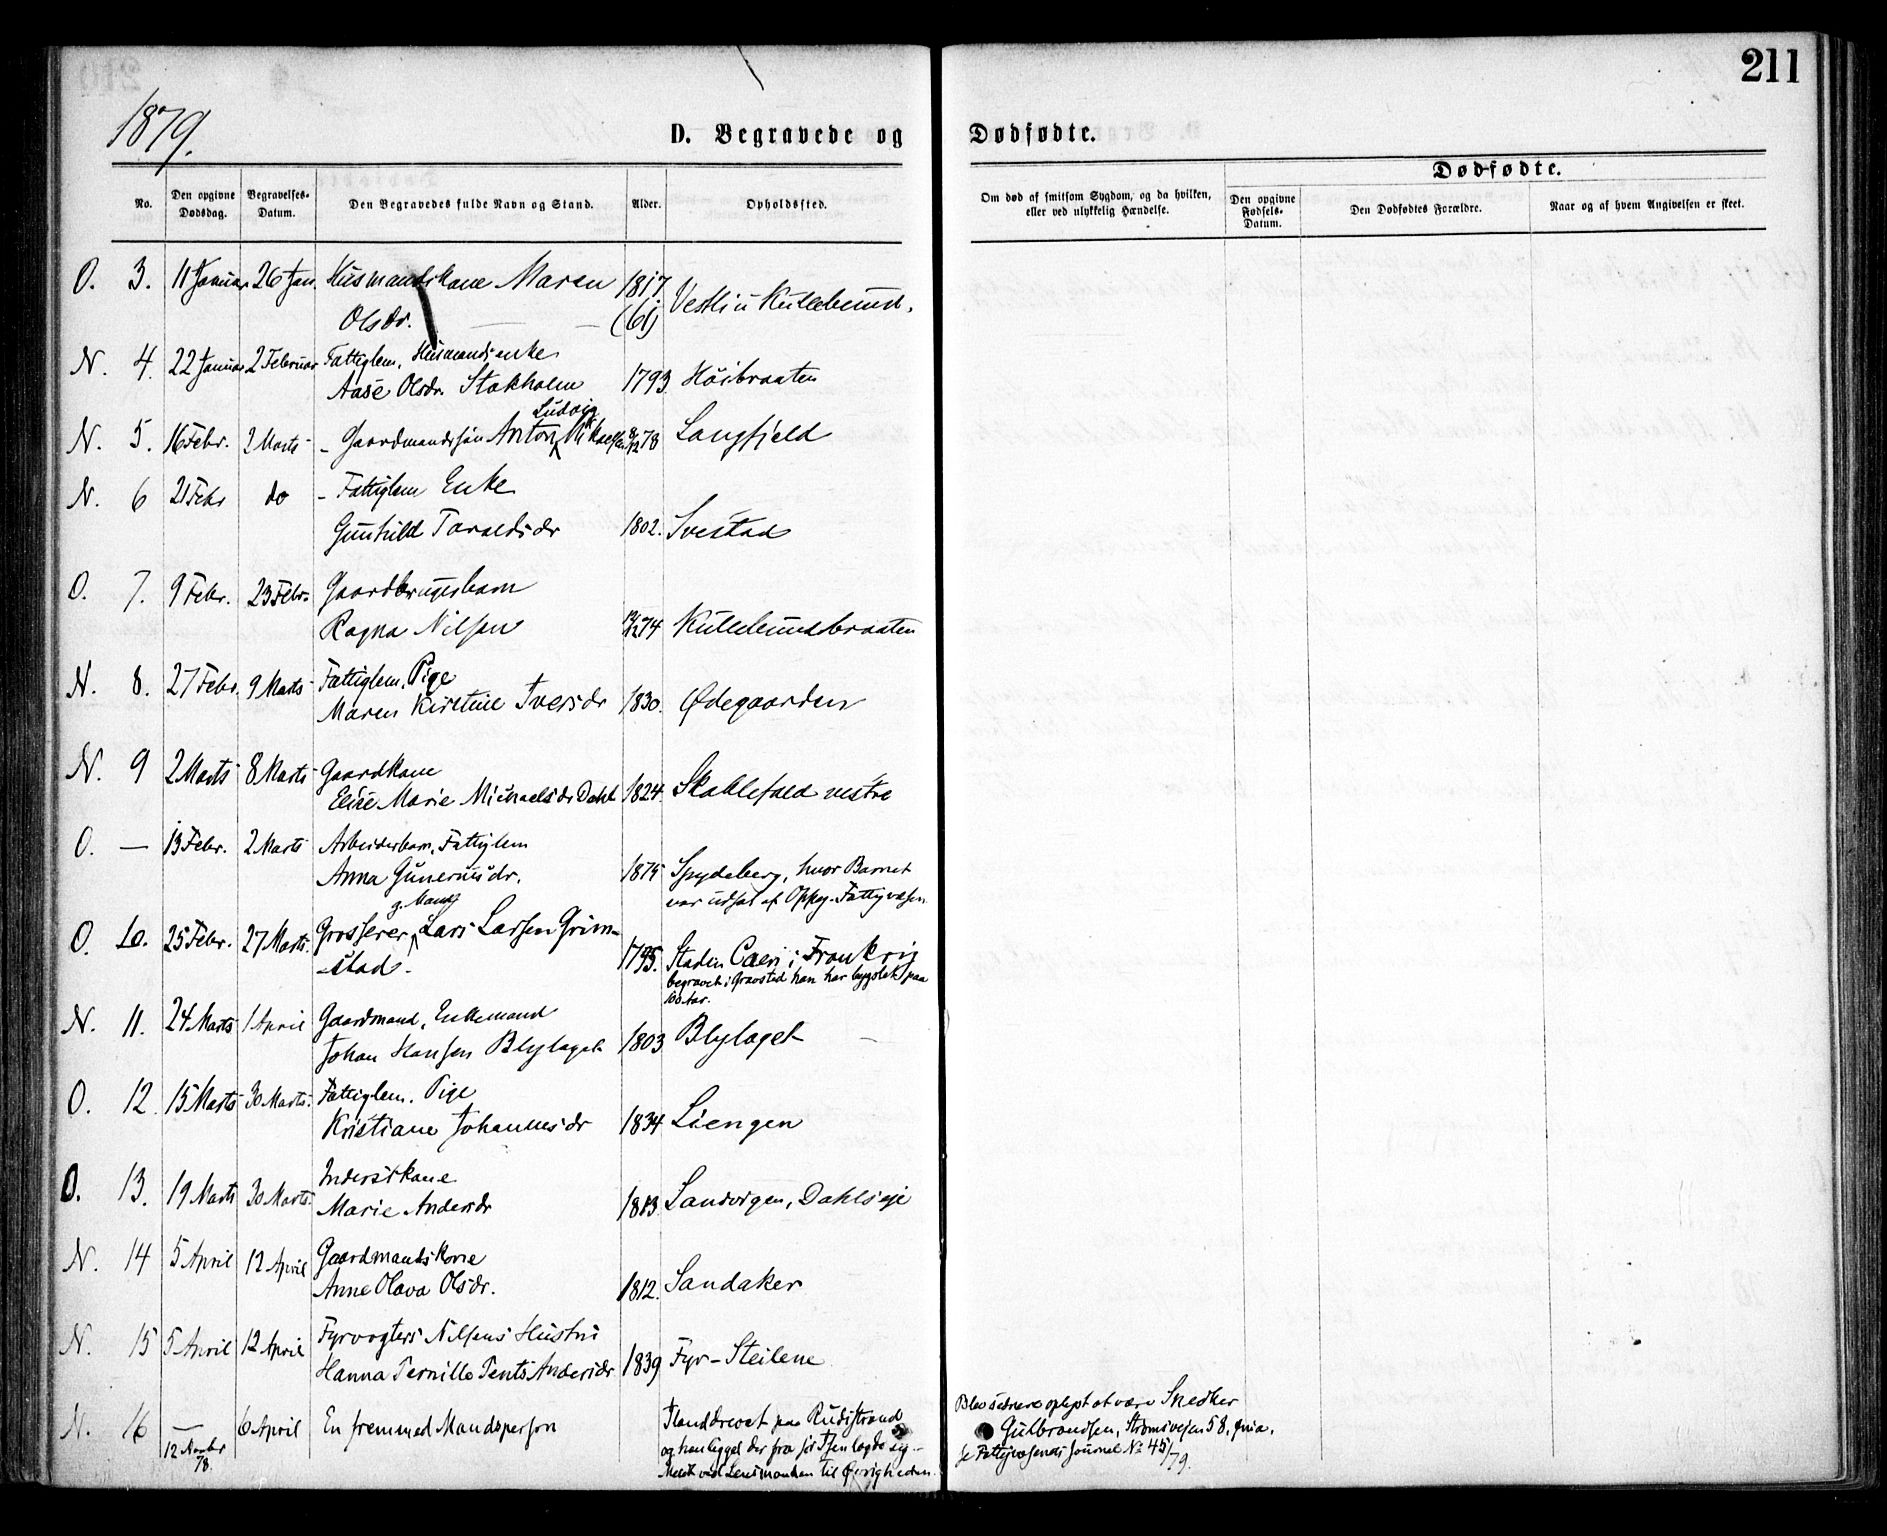 211
1879.
D. Begravede og Dødfødte.
Dødfødte.
No. Den opgivne Dødsdag. Begravelses-Datum. Den Begravedes fulde Navn og Stand. Alder. Opholdssted. Om død af smitsom Sygdom, og da hvilken, eller ved ulykkelig Hændelse. Den opgivne Fødsels-Datum. Den Dødfødtes Forældre. Naar og af hvem Angivelsen er skeet.
O. 3. 11 Januar 26 Jan. Husmandskone Maren 1817
Olsdr. (61) Vestli u Kullebund.
N. 4. 22 Januar 2 Februar Fattiglem, Husmandsenke
Aase Olsdr. Stokholm 1793. Høibraaten
Ludvig
N. 5. 16 Febr. 2 Marts - Gaardmandssøn Anton Mikaelsen 8/12 78 Langfjeld
N. 6 21 Febr do - Fattiglem Enke
Gunhild Taraldsdr 1802. Svestad
O. 7. 9 Febr. 23 Febr. Gaardbrugerbarn
Ragna Nilsen 74 Kullebundbraaten
N. 8. 27 Febr. 9 Marts Fattiglem, Pige
Maren Kirstine Iversdr 1830. Ødegaarden
N. 9 2 Marts 8 Marts Gaardkone
Elise Marie Michaelsdr Dahl 1824. Skoklefald vestre
O. — 13 Febr. 2 Marts Arbeiderbarn, Fattiglem
Anna Gunerusdr. 1875 Spydeberg, hvor Barnet
var udsat af Oppeg. Fattigvæsen
g. Mand
O. 10. 25 Febr. 27 Marts. Grosserer Lars Larsen Grim-
stad. 1795. Staden Caen i Frankrig
begravet i Gravsted han har bygslet paa
100 Aar.
N. 11. 24 Marts 1 April Gaardmand, Enkemand
Johan Hansen Blylaget 1803 Blylaget —
O. 12. 15 Marts 30 Marts. Fattiglem. Pige
Kristiane Johannesdr 1834 Liengen
O. 13. 19 Marts 30 Marts. Inderstkone
Marie Andersdr 1813. Sandvigen, Dahlseje
N. 14 5 April 12 April Gaardmandskone
Anne Olava Olsdr. 1812. Sandaker
N. 15 5 April 12 April Fyrvogters Nilsens Hustru
Hanna Pernille Andersdr 1839. Fyr-Steilene
N. 16 — 6 April En fremmed Mandsperson Ilanddrevet paa Rudsstrand
12 Novbr 78. og han ligget der fra før Isen lagde sig -
Meldt ved Lensmanden til Øvrigheden.
Blev senere oplyst at være Snedker
Gulbrandsen, Strømsveien 58,
Fattigvæsenets Journal No 45/79.